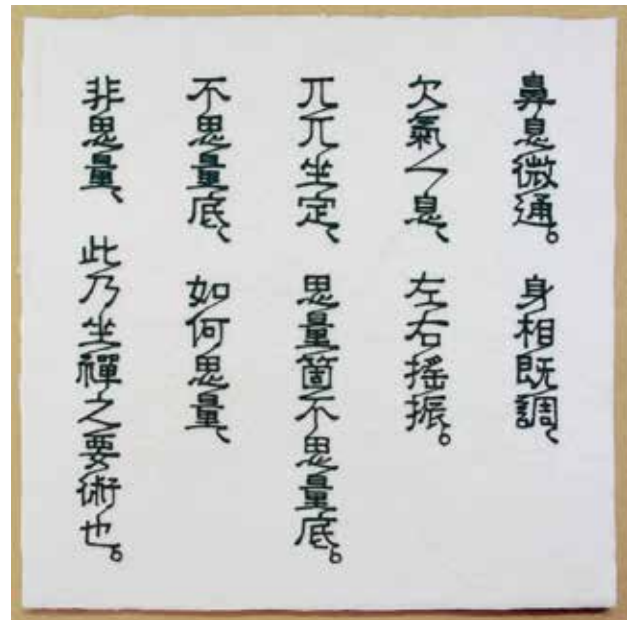 鼻息微通。 身相既調、
欠氣一息、 左右搖振。
兀兀坐定、 思量箇不思量底。
不思量底、 如何思量、
非思量、 此乃坐禪之要術也。